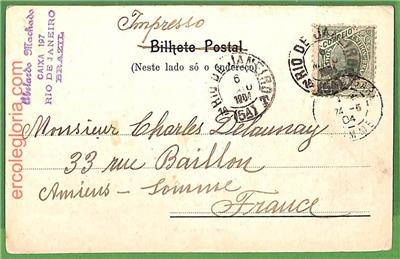 Impresso
Bilhete Postal
(Neste lado só o endereço)
Abelardo Machado
CAIXA 197
RIO DE JANEIRO
BRAZIL
ercolegloria.com
CORREIO
RIO DE JANEIRO
6
1904
(5A)
RIO DE JA
24 -6
04
Monsieur Charles Delaunay
33 rue Baillon
Amiens - Somme
France